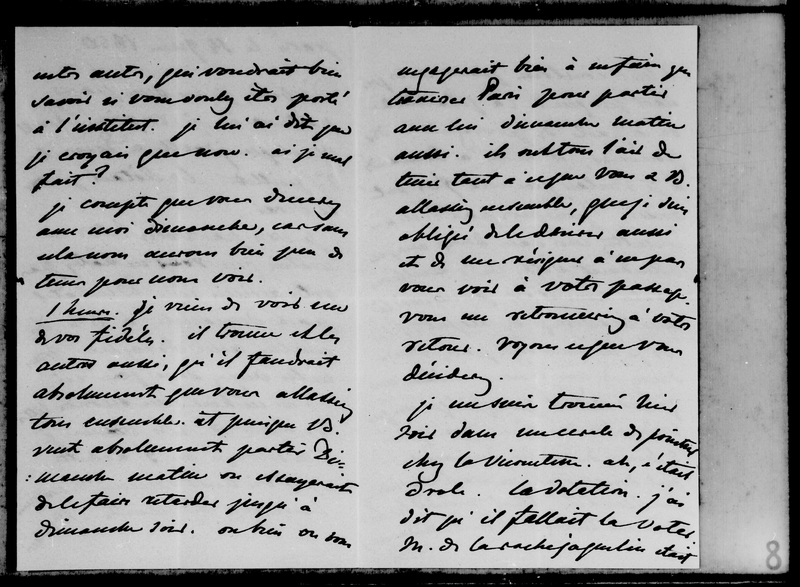 autres, qui voudrait bien
savoir si vous voulez être porté
à l'institut. je lui ai dit que
je croyais que non. ai je mal
fait?
je compte que vous dinerez
avec moi dimanche, car sans
cela nous aurons bien peu de
tems pour nous voir.
1 heure. Je viens de voir un
de vos fidèles. il trouve et les
autres aussi, qu'il faudrait
absolument que vous allassiez
tous ensemble. et puisque B.
veut absolument partir Di-
:manche matin on essayerait
de le faire retarder jusqu'à
dimanche soir. ou bien on vous
engagerait bien à ne faire que
traverser Paris pour partir
avec lui dimanche matin
aussi. ils ont tous l'air de
tenir tant à ce que vous et B.
allassiez ensemble, que je suis
obligée de le désirer aussi
et de me résigner à ne pas
vous voir à votre passage.
vous me retrouverez à votre
retour. Voyons ce que vous
déciderez.
je me suis trouvée hier
soir dans un cercle de
chez la Vicomtesse. ah, c'était
drole. la dotation. j'ai
dit qu'il fallait la voter
M. de la rochejaquelin était
8